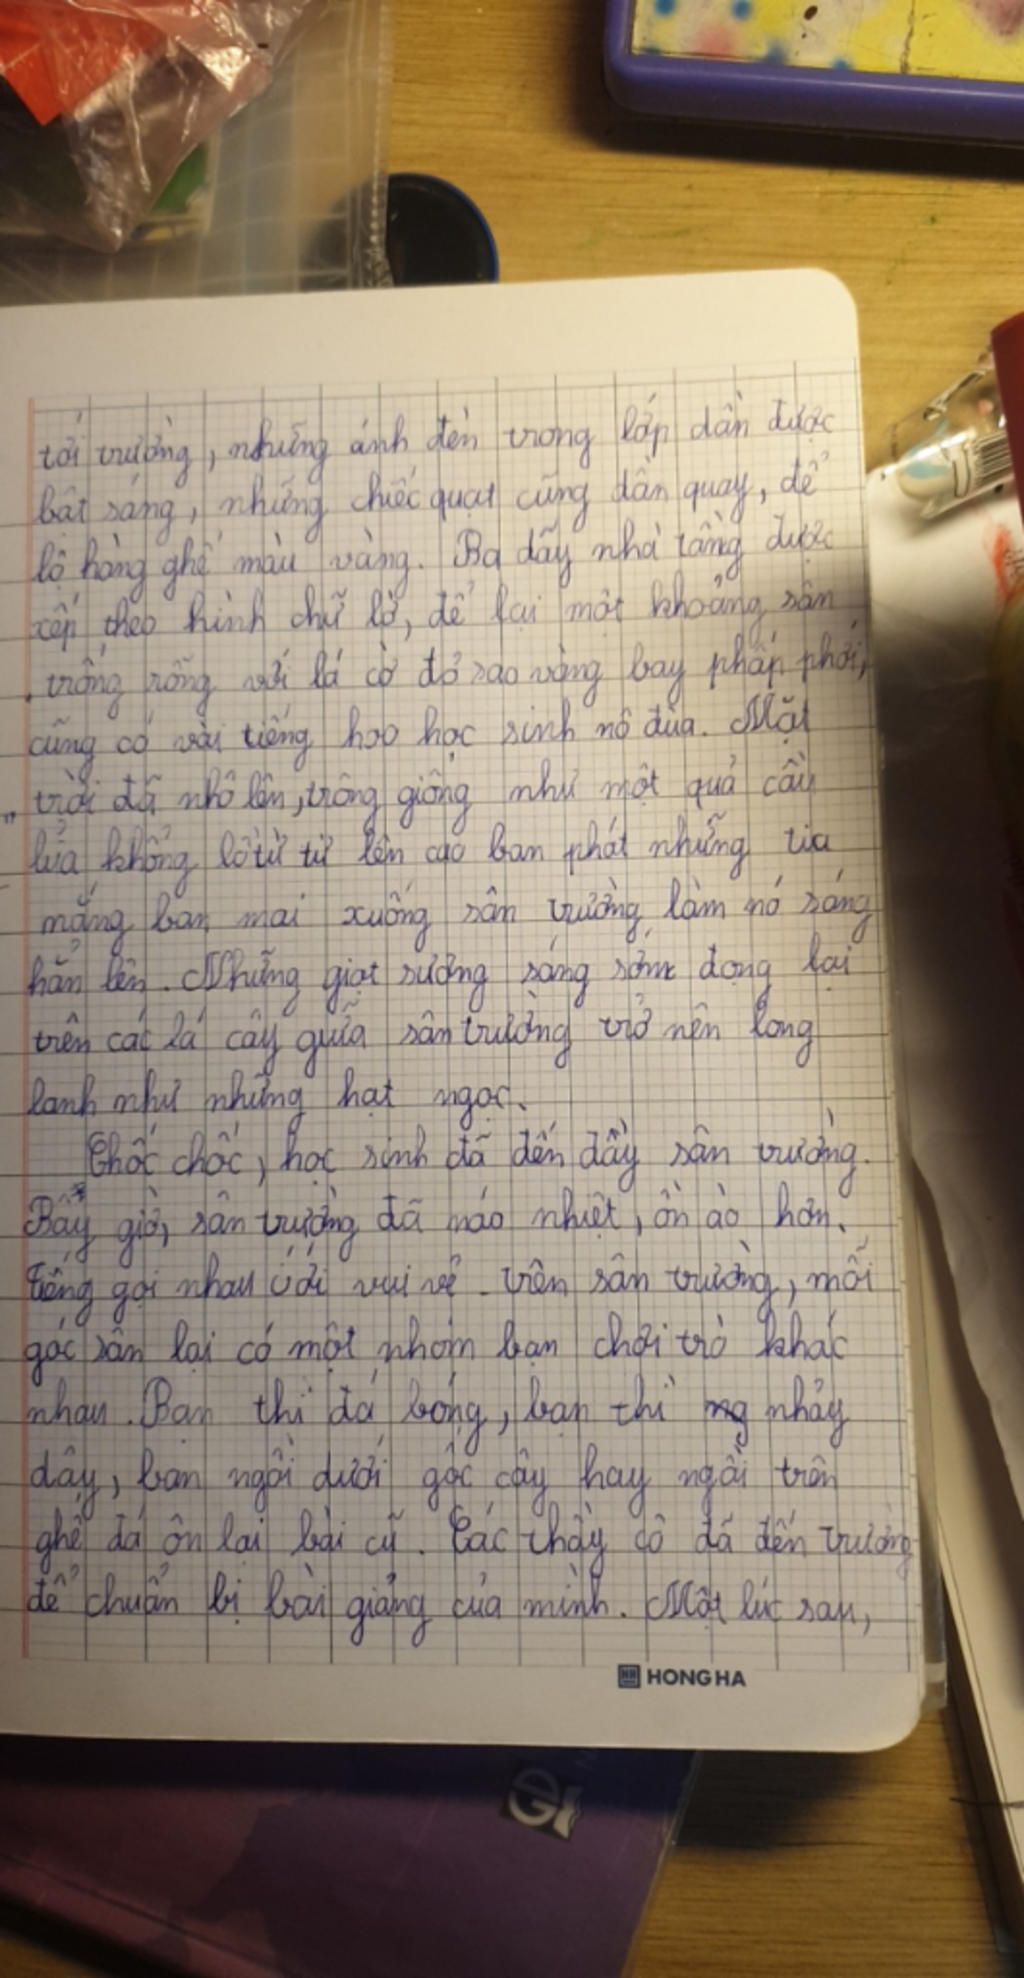 tới trường, những ánh đèn trong lớp dần được
bật sáng, những chiếc quạt cũng dần quay, để
lộ hàng ghế màu vàng. Ba dãy nhà tầng được
xếp theo hình chữ U, để lại một khoảng sân
trống rỗng với lá cờ đỏ sao vàng bay phấp phới,
cũng có vài tiếng học sinh nô đùa. Mặt
trời đã nhô lên, trông giống như một quả cầu
lửa khổng lồ từ từ lên cao ban phát những tia
nắng ban mai xuống sân trường, làm nó sáng
hẳn lên. Những giọt sương sáng sớm đọng lại
trên các lá cây giữa sân trường trở nên long
lanh như những hạt ngọc.
Chốc chốc, học sinh đã đến đầy sân trường.
Bấy giờ, sân trường đã náo nhiệt, ồn ào hơn.
Tiếng gọi nhau ơi ới vui vẻ. Trên sân trường, mỗi
góc sân lại có một nhóm bạn chơi trò khác
nhau. Bạn thì đá bóng, bạn thì nhảy
dây, bạn ngồi dưới gốc cây hay ngồi trên
ghế đá ôn lại bài cũ. Các thầy cô đã đến trường
để chuẩn bị bài giảng của mình. Một lúc sau,
HONG HA